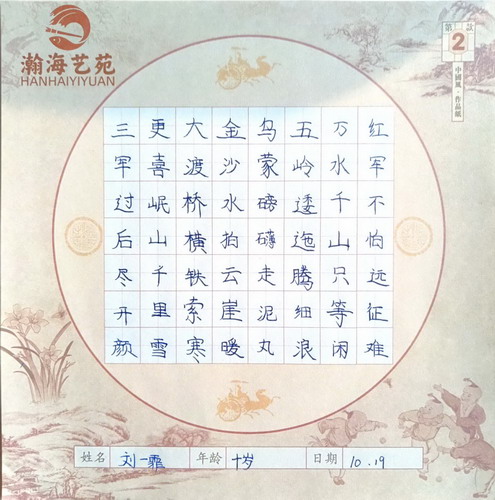 瀚海艺苑
HANHAIYIYUAN
第2款
中國風·作品紙
红军不怕远征难
万水千山只等闲
五岭逶迤腾细浪
乌蒙磅礴走泥丸
金沙水拍云崖暖
大渡桥横铁索寒
更喜岷山千里雪
三军过后尽开颜
姓名 刘一霏 年龄 十岁 日期 10.19